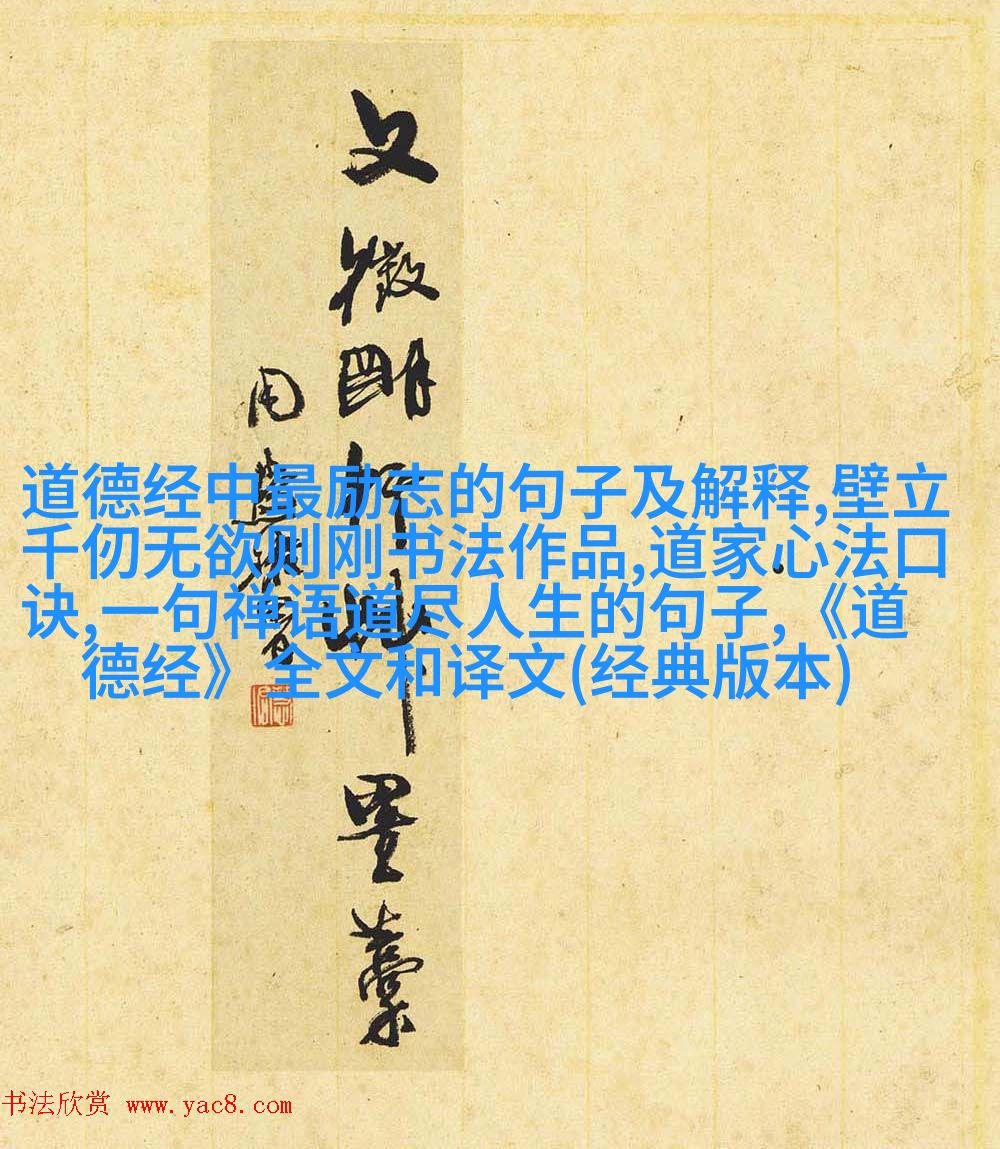 文徵明行书墨藁
道德经中最励志的句子及解释,壁立
千仞无欲则刚书法作品,道家心法口
诀,一句禅语道尽人生的句子,《道
德经》全文和译文(经典版本)
书法欣赏 www.yac8.com